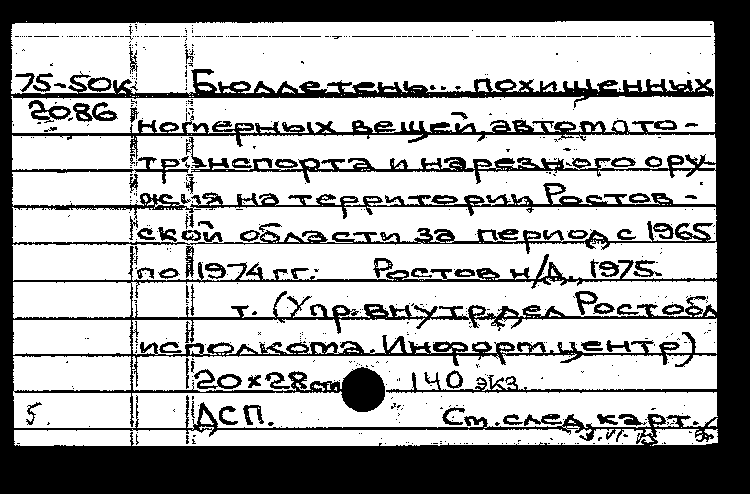 75-50к Бюллетень... похищенных
2086 номерных вещей, автомото-
транспорта и нарезного ору-
жия на территории Ростов-
ской области за период с 1965
по 1974 гг. Ростов н/Д., 1975.
т. (Упр. внутр. дел Ростобл
исполкома. Информ. центр)
20×28 cm 140 экз.
5. ДСП. Ст. след. карт.